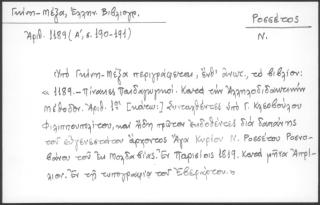 Γκίνη-Μέξα, Ἑλλην. Βιβλιογρ.
Ἀριθ. 1189 (Α', σ. 190-191)
Ροσσέτος
Ν.
Ὑπὸ Γκίνη-Μέξα περιγράφεται, ἔνθ' ἀνωτ., τὸ βιβλίον:
« 1189.- Πίνακες Παιδαγωγικοί. Κατὰ τὴν Ἀλληλοδιδακτικὴν
Μέθοδον. Ἀριθ. 1ος Συνταχθέντες ὑπὸ Γ. Κλεοβούλου
Φιλιππουπολίτου, καὶ ἤδη πρῶτον ἐκδοθέντες διὰ δαπάνης
τοῦ εὐγενεστάτου ἄρχοντος Ἀγα Κυρίου Ν. Ροσσέτου Ροσνο-
βάνου τοῦ ἐκ Μολδαβίας. Ἐν Παρισίοις 1819. Κατὰ μῆνα Ἀπρί-
λιον. Ἐκ τῆς τυπογραφίας τοῦ Ἐβεράρτου.»